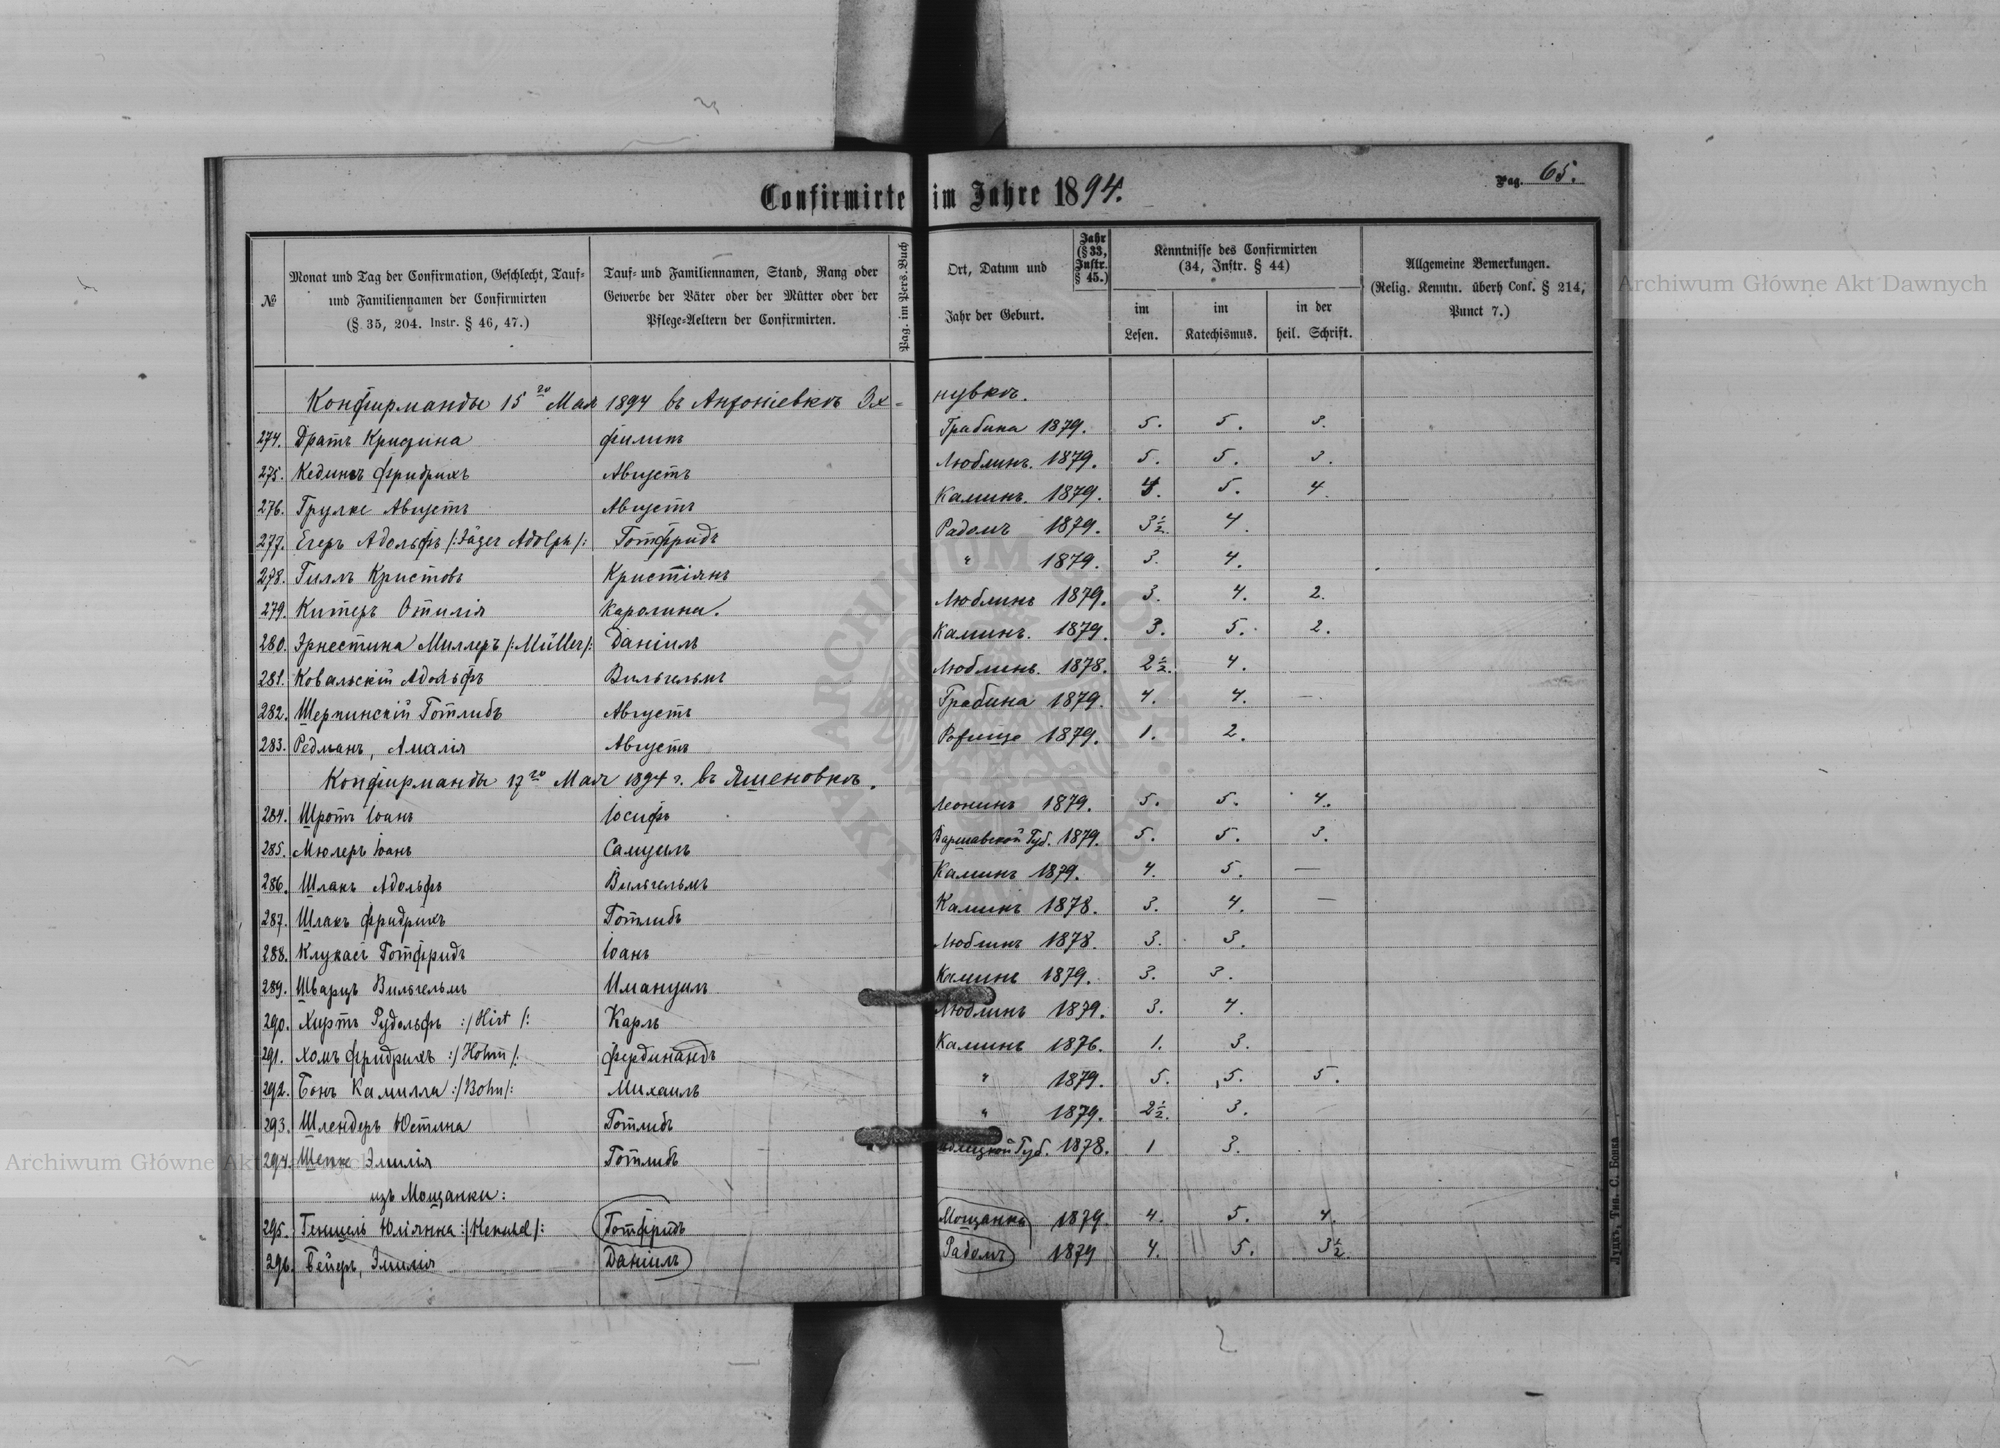 Confirmirte im Jahre 1894.
Pag. 65.
№
Monat und Tag der Confirmation, Geschlecht, Tauf-
und Familiennamen der Confirmirten
(§ 35, 204. Instr. § 46, 47.)
Tauf- und Familiennamen, Stand, Rang oder
Gewerbe der Väter oder der Mütter oder der
Pflege-Aeltern der Confirmirten.
Pag. im Pers.-Buch
Ort, Datum und
Jahr der Geburt.
Jahr
(§ 33,
Instr.
§ 45.)
Kenntnisse des Confirmirten
(34, Instr. § 44)
im
Lesen.
im
Katechismus.
in der
heil. Schrift.
Allgemeine Bemerkungen.
(Relig. Kenntn. überh Conf. § 214,
Punct 7.)
Конфирманды 15го Мая 1894 въ Антоніевкѣ Эх- нувкѣ.
274. Дратъ Кристина Филипъ Грабина 1879. 5. 5. 3.
275. Кедингъ Фридрихъ Августъ Люблинъ. 1879. 5. 5. 3.
276. Грулке Августъ Августъ Каминъ. 1879. 5. 4.
277. Егеръ Адольфъ /:Jäger Adolph/: Готфридъ Радомъ 1879. 3½. 4.
278. Гиллъ Кристовъ Кристіянъ " 1879. 3. 4.
279. Китеръ Отилія Каролина. Люблинъ 1879. 3. 4. 2.
280. Эрнестина Миллеръ /:Müller/: Даніилъ Каминъ. 1879. 3. 5. 2.
281. Ковальскій Адольфъ Вильгельмъ Люблинъ. 1878. 2½. 4.
282. Шерпинскій Готлибъ Августъ Грабина 1879. 4. 4. —
283. Редманъ, Амалія Августъ Рожище 1879. 1. 2.
Конфирманды 17го Мая 1894 г. въ Яшеновкѣ.
284. Шротъ Іоанъ Іосифъ Леонинъ 1879. 5. 5. 4.
285. Мюлеръ Іоанъ Самуилъ Варшавской Губ. 1879. 5. 5. 3.
286. Шлакъ Адольфъ Вильгельмъ Каминъ 1879. 4. 5. —
287. Шлакъ Фридрихъ Готлибъ Каминъ 1878. 3. 4. —
288. Готфридъ Іоанъ Люблинъ 1878. 3. 3.
289. Шварцъ Вильгельмъ Имануилъ Каминъ 1879. 3. 3.
290. Хиртъ Рудольфъ :/Hirt/: Карлъ Люблинъ 1879. 3. 4.
291. Хомъ Фридрихъ :/Hohm/: Фердинандъ Каминъ 1876. 1. 3.
292. Бонъ Камилла :/Bohn/: Михаилъ " 1879. 5. 5. 5.
293. Шлендеръ Юстина Готлибъ " 1879. 2½. 3.
294. Шенк Эмилія Готлибъ Губ. 1878. 1 3.
изъ Мощанки:
295. Геншель Юліянна Готфридъ Мощанка 1879. 4. 5. 4.
296. Бейеръ, Эмилія Даніилъ Радомъ 1879 4. 5. 3½.
Луцкъ, Тип. С. Бонка
Archiwum Główne Akt Dawnych
Archiwum Główne Akt Dawnych
ARCHIWUM GŁÓWNE AKT DAWNYCH